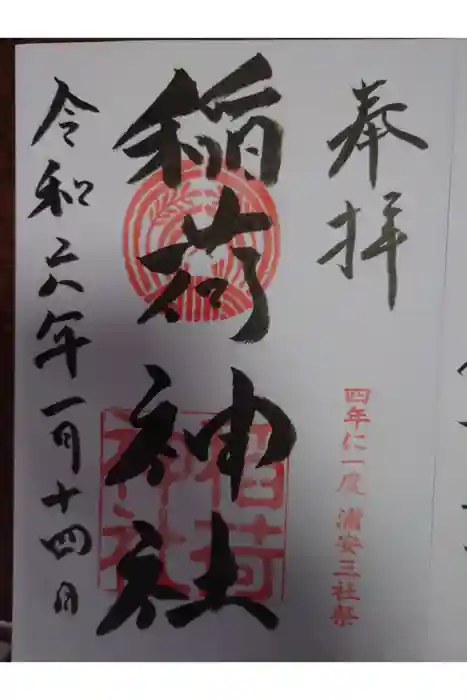 奉拝
四年に一度 浦安三社祭
稲荷神社
稲荷
神社
令和六年一月十四日